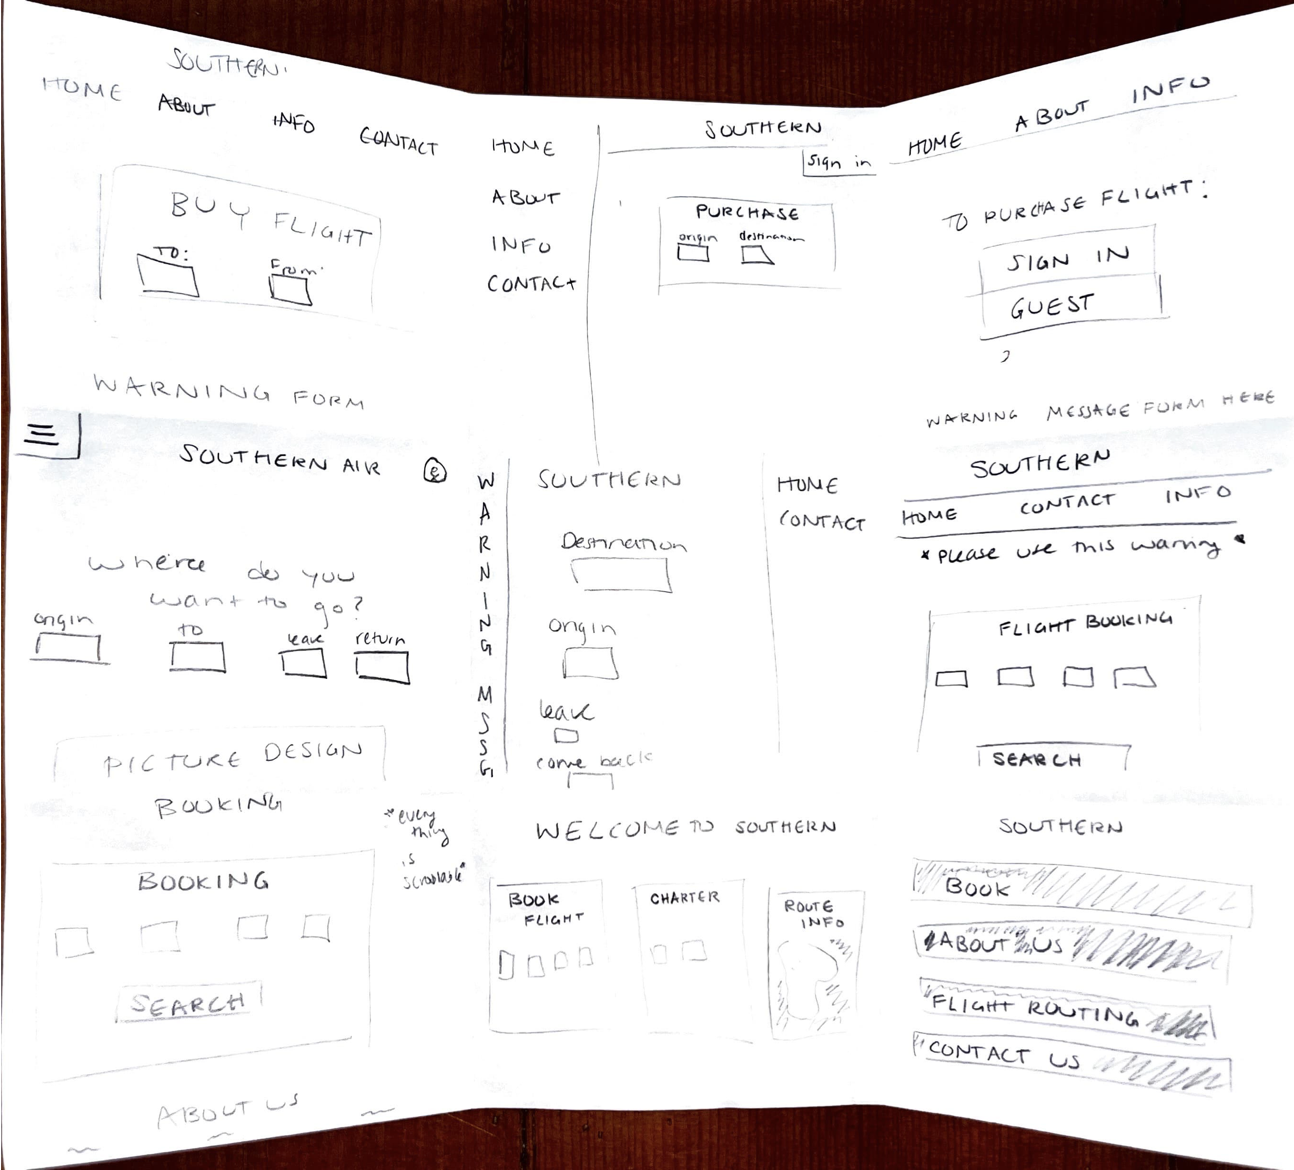 SOUTHERN
HOME ABOUT INFO CONTACT
BUY FLIGHT
TO: From:
WARNING FORM
HOME
ABOUT
INFO
CONTACT
SOUTHERN
Sign in
PURCHASE
origin destination
HOME ABOUT INFO
TO PURCHASE FLIGHT:
SIGN IN
GUEST
WARNING MESSAGE FORM HERE
SOUTHERN AIR
Where do you
want to go?
origin to leave return
PICTURE DESIGN
WARNING MSSG
SOUTHERN
Destination
origin
leave
come back
HOME
CONTACT
SOUTHERN
HOME CONTACT INFO
*Please use this warning*
FLIGHT BOOKING
SEARCH
BOOKING
*every
thing
is
scrollable*
BOOKING
SEARCH
ABOUT US
WELCOME TO SOUTHERN
BOOK
FLIGHT
CHARTER
ROUTE
INFO
SOUTHERN
BOOK
ABOUT US
FLIGHT ROUTING
CONTACT US